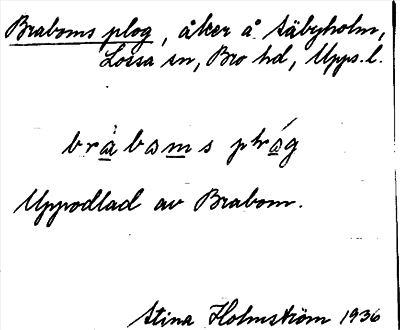 Braboms plog, åker å Säbyholm,
Lossa sn, Bro hd, Upps. l.
bràboms plóg
Uppodlad av Brabom.
Stina Holmström 1936